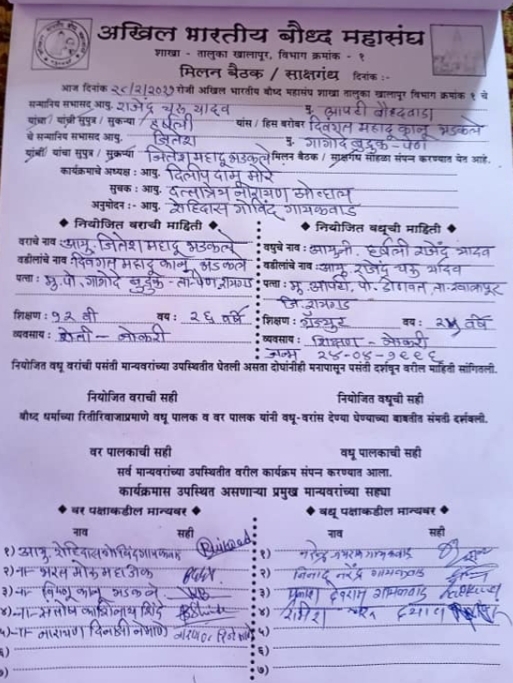 अखिल भारतीय बौध्द महासंघ
शाखा - तालुका खालापूर, विभाग क्रमांक - १
मिलन बैठक / साक्षगंध दिनांक :-
आज दिनांक २८/२/२०२१ रोजी अखिल भारतीय बौध्द महासंघ शाखा तालुका खालापूर विभाग क्रमांक १ चे
सन्मानिय सभासद आयु. राजेंद्र चहू यादव मु. आपटी बौध्दवाडा
यांचा / यांची सुपुत्र / सुकन्या हर्षली यांस / हिस बरोबर दिवंगत महादू कानू भडकले
चे सन्मानिय सभासद आयु. जितेश मु. गागोदे बुद्रुक - पेण
यांची/ यांचा सुपुत्र / सुकन्या जितेश महादू भडकले मिलन बैठक / साक्षगंध सोहळा संपन्न करण्यात येत आहे.
कार्यक्रमाचे अध्यक्ष : आयु. दिलीप दामू मोरे
सुचक : आयु. दत्तात्रेय नारायण
अनुमोदन :- आयु. रोहिदास गोविंद गायकवाड
◆ नियोजित वराची माहिती ◆ ◆ नियोजित वधूची माहिती ◆
वराचे नाव : आयु. जितेश महादू भडकले वधुचे नाव : आयुनी. हर्षली राजेंद्र यादव
वडीलांचे नाव : दिवंगत महादू कानू भडकले वडीलांचे नाव : आयु. राजेंद्र चहू यादव
पत्ता : मु. पो. गागोदे बुद्रुक - ता - पेण, रायगड पत्ता : मु. आपटी, पो. डोणवत, ता. खालापूर
जि. रायगड
शिक्षण : १२ वी वय : २६ वर्षे शिक्षण : वय : २५ वर्षे
व्यवसाय : शेती - नोकरी व्यवसाय : शिक्षण - नोकरी
जन्म २४-०४-१९९६
नियोजित वधू वरांची पसंती मान्यवरांच्या उपस्थितीत घेतली असता दोघांनीही मनापासून पसंती दर्शवून वरील माहिती सांगितली.
नियोजित वराची सही नियोजित वधूची सही
बौध्द धर्माच्या रितीरिवाजाप्रमाणे वधू पालक व वर पालक यांनी वधू-वरांस देण्या घेण्याच्या बाबतीत संमती दर्शवली.
वर पालकाची सही वधू पालकाची सही
सर्व मान्यवरांच्या उपस्थितीत वरील कार्यक्रम संपन करण्यात आला.
कार्यक्रमास उपस्थित असणाऱ्या प्रमुख मान्यवरांच्या सह्या
◆ वर पक्षाकडील मान्यबर ◆ ◆ वधू पक्षाकडील मान्यबर ◆
नाव सही नाव सही
१) आयु. रोहिदास गोविंद गायकवाड १) नरेंद्र गायकवाड
२) -॥- भरत २) विनोद नरेंद्र गायकवाड
३) -॥- विष्णू कानू भडकले ३) प्रकाश देवराम गायकवाड
४) -॥- संतोष काशिनाथ शिंदे ४)
५) -॥- नारायण दिनाजी ५)
६) ६)
७) ७)